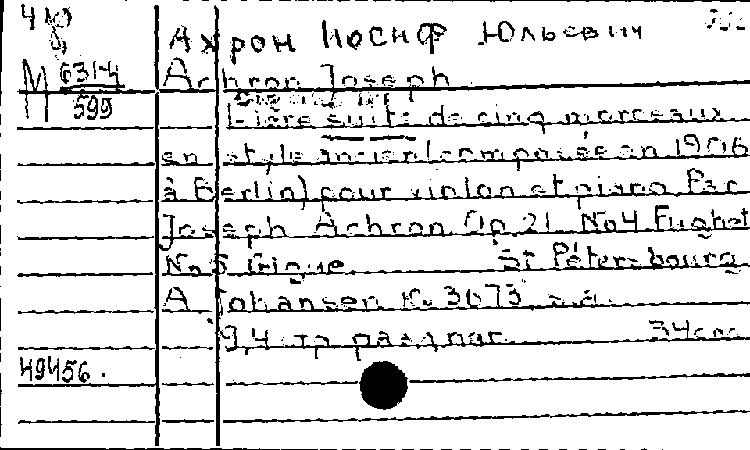 Ахрон Иосиф Юльевич
М 631-4
599
Achron Joseph
I-ière suite de cinq morceaux
en style ancien (composée en 1906
à Berlin) pour violon et piano Par
Joseph Achron Op. 21 No 4 Fughet
No 5 Gigue. St Pétersbourg
A Johansen К. 3673, s.a.
9,4 стр разднаг. 34см.
49456.